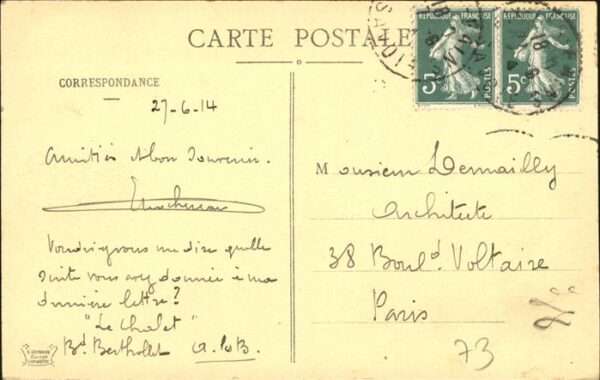 CARTE POSTALE
CORRESPONDANCE
27-6-14
Amitiés & bon Souvenir.
Voudriez vous me dire quelle
suite vous avez donnée à ma
dernière lettre?
"Le Chalet"
Bd Berthollet A.l.B.
REPUBLIQUE FRANÇAISE
5c
POSTES
REPUBLIQUE FRANÇAISE
5c
POSTES
SAVOIE
Monsieur Demailly
Architecte
38 Boul.d Voltaire
Paris
73